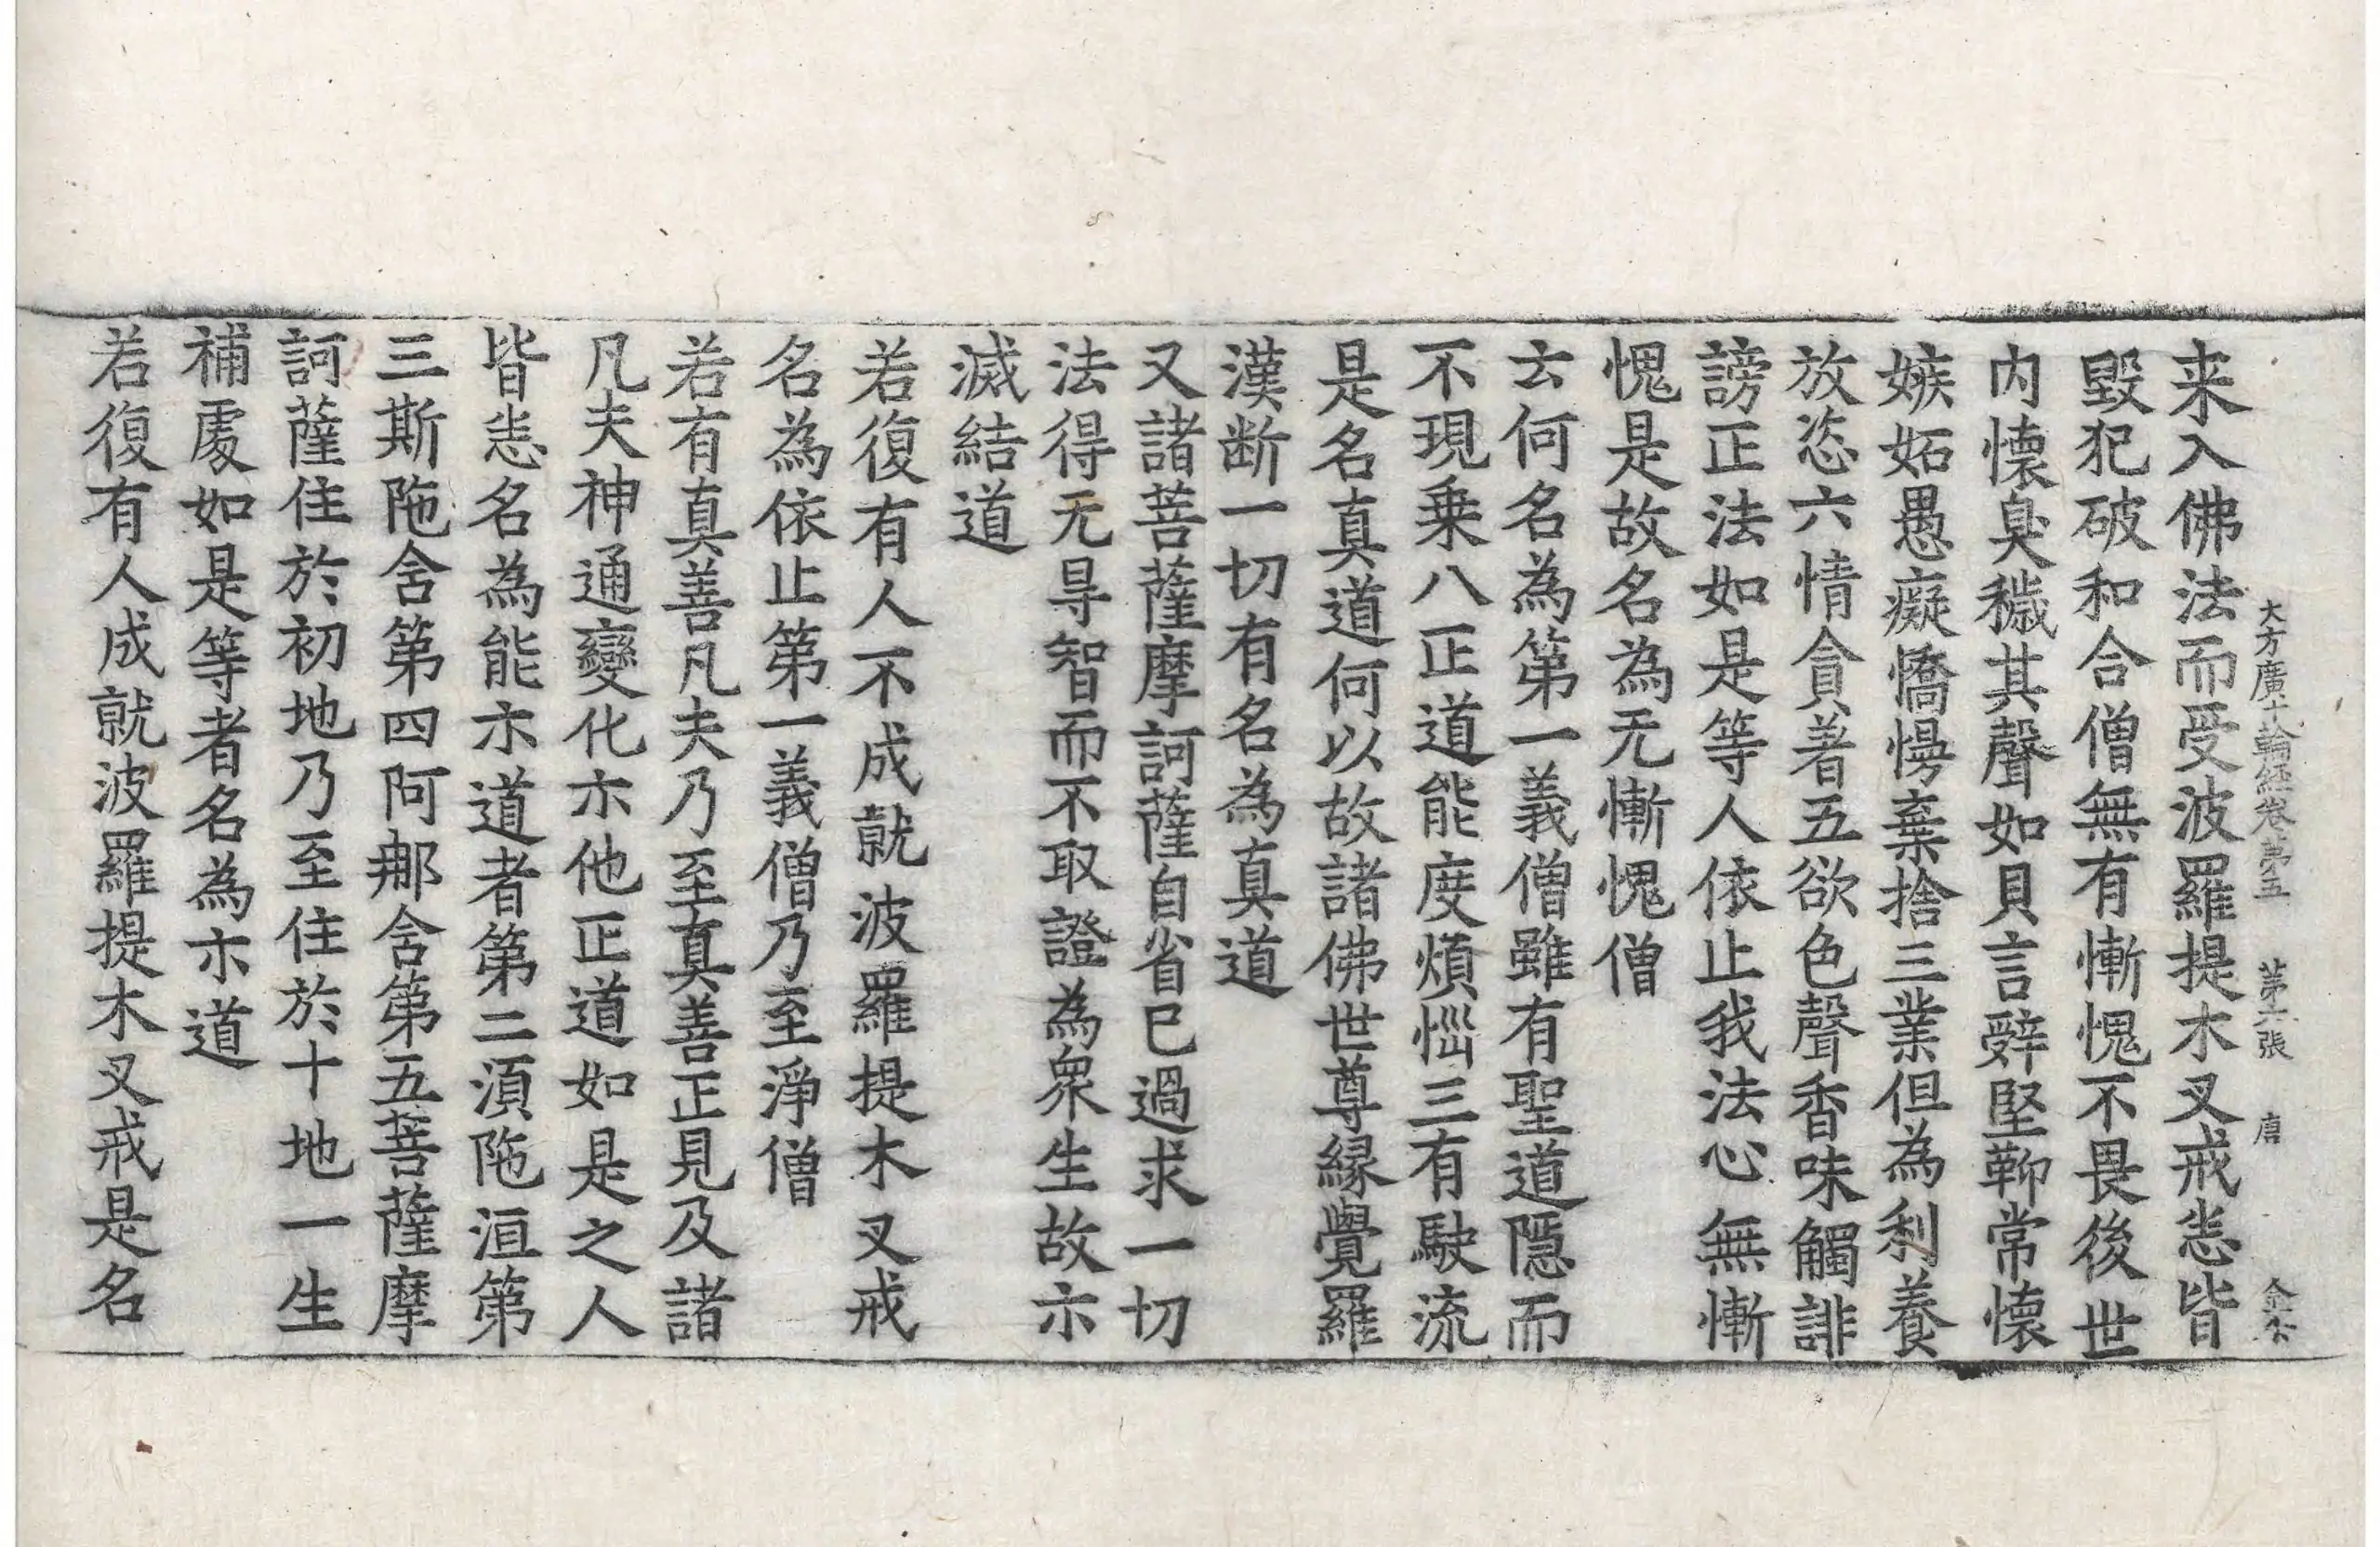 大方廣十輪經卷第五　第六張　唐
来入佛法而受波羅提木叉戒恙皆
毀犯破和合僧無有慚愧不畏後世
内懷臭穢其聲如貝言辤堅鞕常懷
嫉妬愚癡憍慢棄捨三業但為利養
放恣六情貪著五欲色聲香味觸誹
謗正法如是等人依止我法心無慚
愧是故名為无慚愧僧
云何名為第一義僧雖有聖道隱而
不現乗八正道能度煩惱三有駛流
是名真道何以故諸佛世尊縁覺羅
漢断一切有名為真道
又諸菩薩摩訶薩自省已過求一切
法得无㝵智而不取證為衆生故示
滅結道
若復有人不成就波羅提木叉戒
名為依止第一義僧乃至淨僧
若有真善凡夫乃至真善正見及諸
凡夫神通變化示他正道如是之人
皆恙名為能示道者第二湏陁洹第
三斯陁舍第四阿那舍第五菩薩摩
訶薩住於初地乃至住於十地一生
補處如是等者名為示道
若復有人成就波羅提木叉戒是名